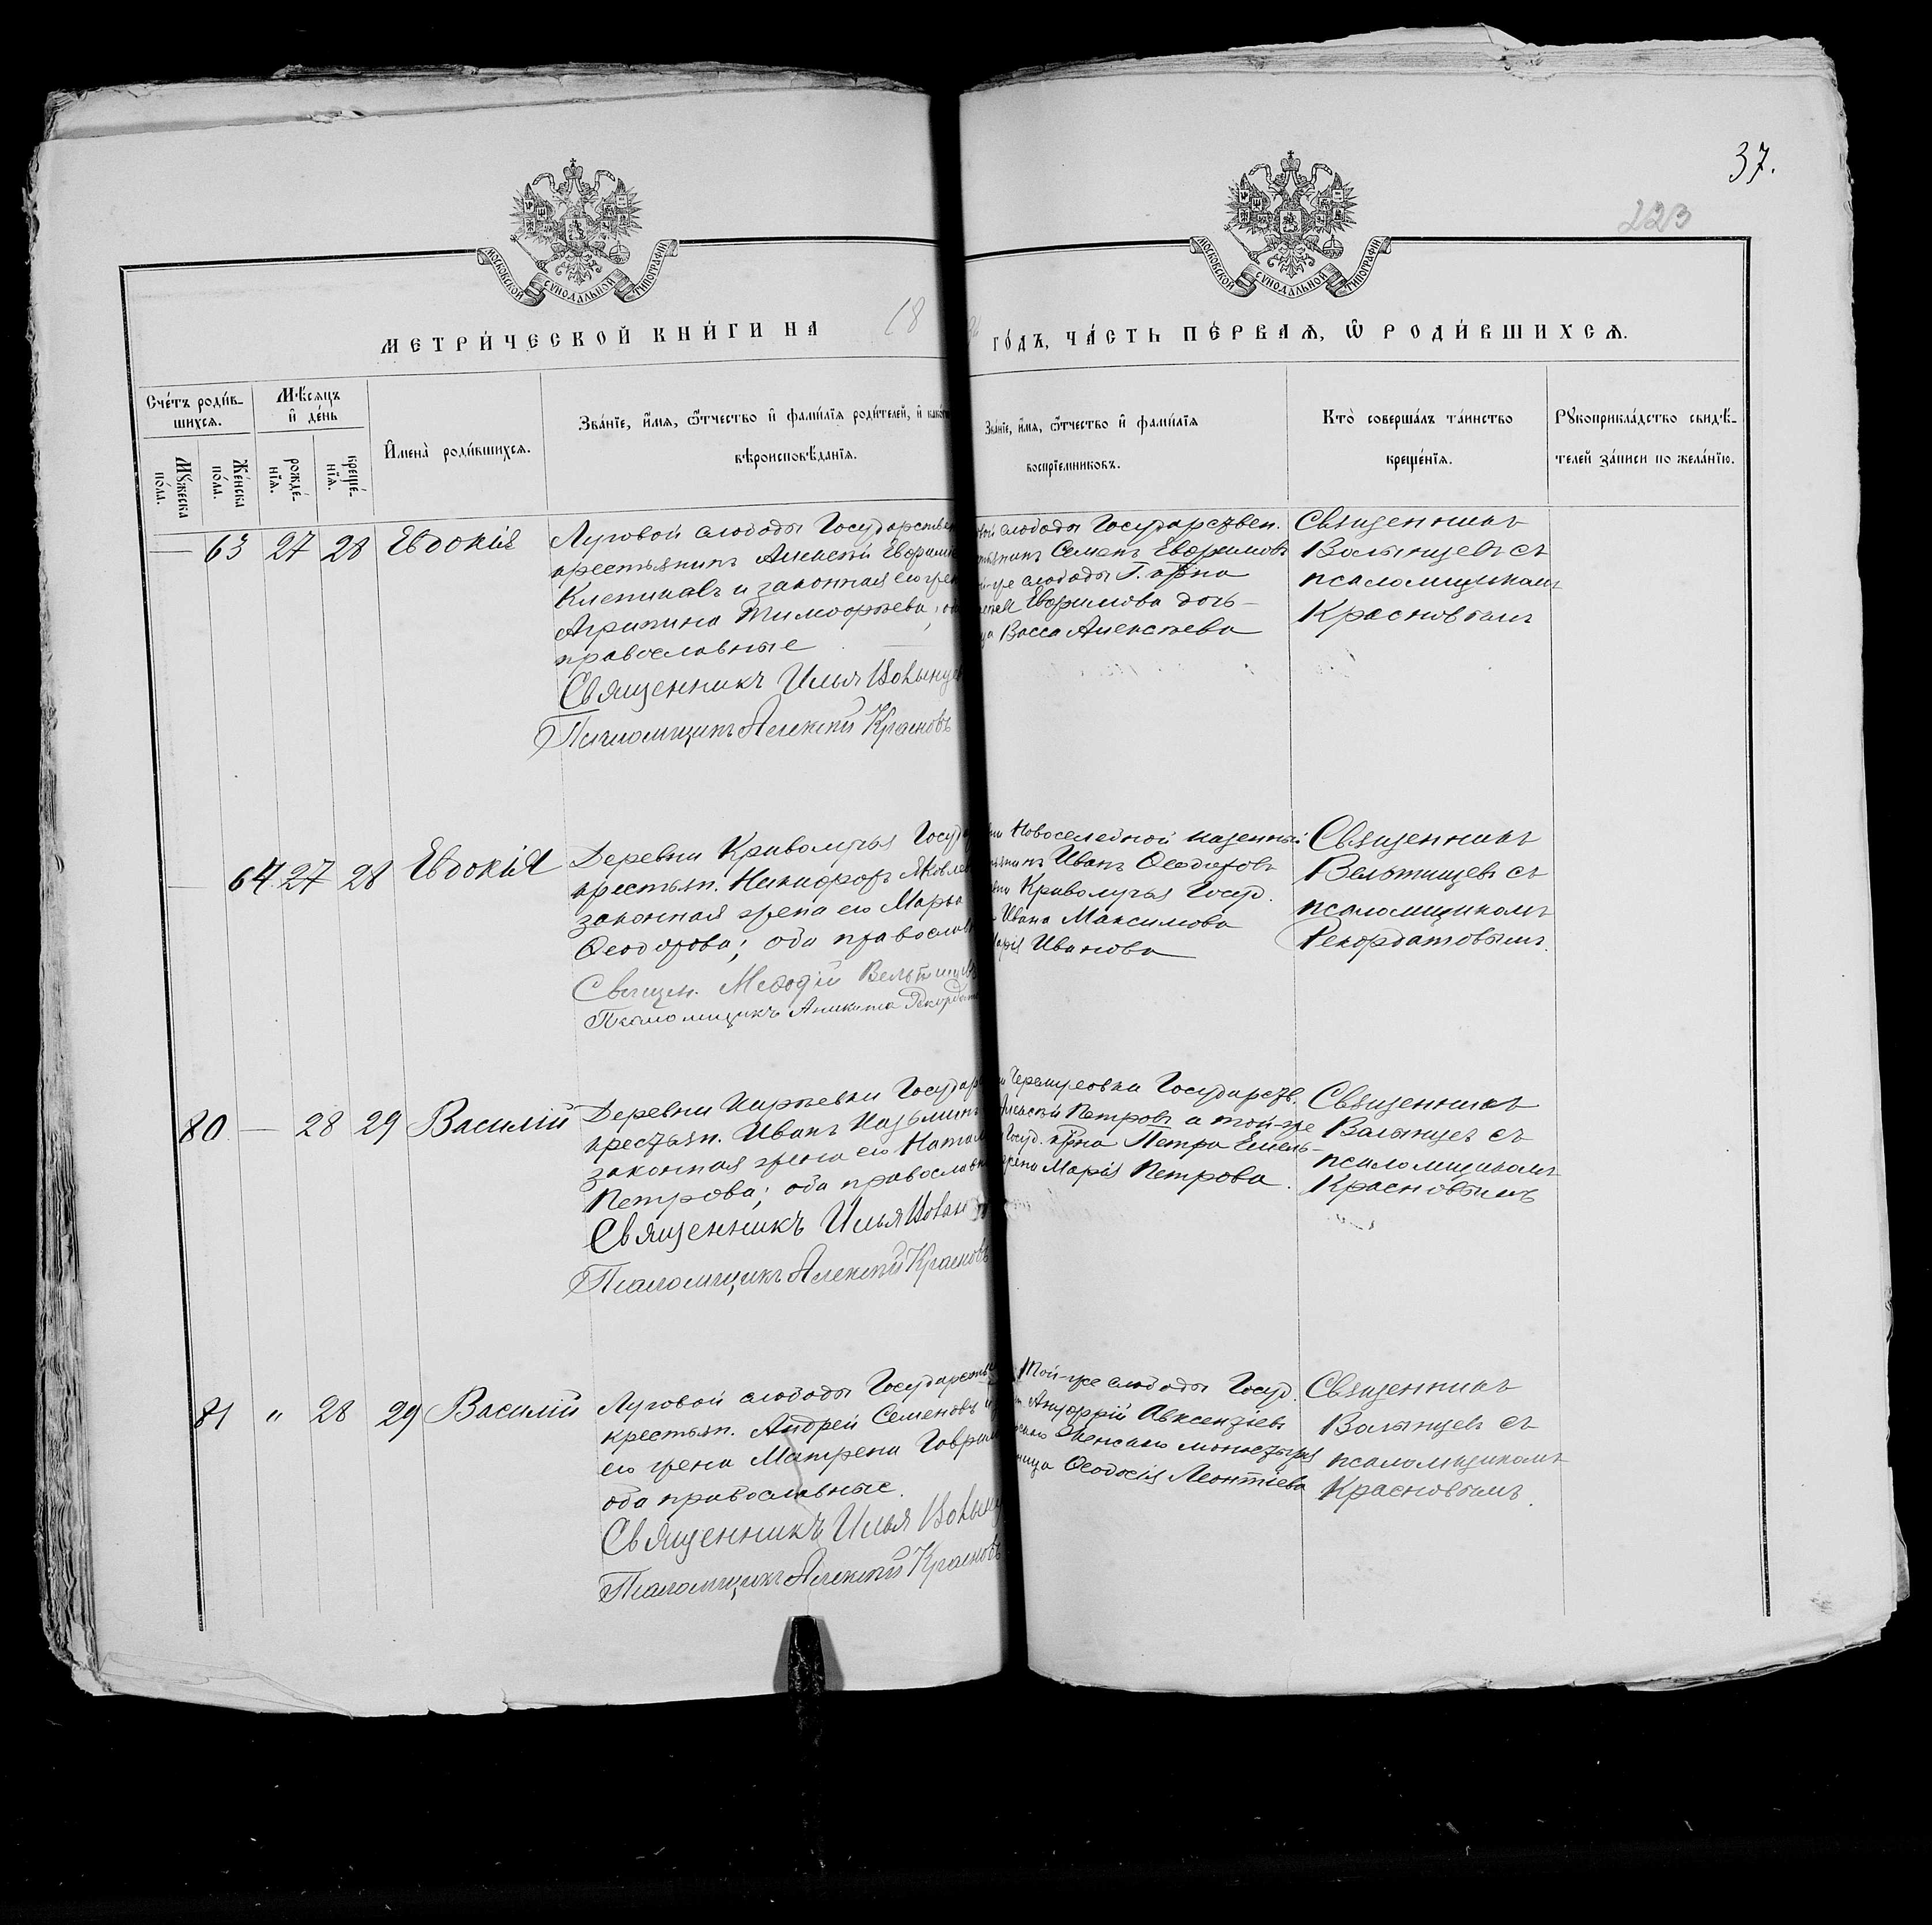 37.
223
МОСКОВСКОЙ СУНОДАЛЬНОЙ ТИПОГРАФІИ
МОСКОВСКОЙ СУНОДАЛЬНОЙ ТИПОГРАФІИ
МЕТРИ́ЧЕСКОЙ КНИ́ГИ НА 18
ГО́ДЪ, ЧА́СТЬ ПЕ́РВАѦ, Ѡ РОДИ́ВШИХСѦ.
Сче́тъ роди́в-
шихсѧ.
Мꙋжеска по́ла.
Же́нска по́ла.
Мѣ́сѧцъ и҆ де́нь
рожде́-нїѧ.
креще́-нїѧ.
И҆мена̀ роди́вшихсѧ.
Зва́нїе, и҆́мѧ, ѻ҆́тчество и҆ фами́лїѧ роди́телей, и҆ како́г
вѣроисповѣ́данїѧ.
Зва́нїе, и҆́мѧ, ѻ҆́тчество и҆ фами́лїѧ
воспрїе́мниковъ.
Кто̀ соверша́лъ та́инство
креще́нїѧ.
Рꙋкоприкла́дство свидѣ́-
телей за́писи по жела́нїю.
— 63 27 28 Евдокія
Луговой слободы Государствен
крестьянинъ Алексѣй Евфиміе
Клепиковъ и законная его жен
Агрипина Тимофѣева, об
православные
Священникъ Илья Волынце
Псаломщикъ Алексѣй Красновъ
вой слободы Государствен.
стьянинъ Семенъ Евфимовъ
й-же слободы Г. крна
Евфимова дочь
ца Васса Алексѣева
Священникъ
Волынцевъ съ
псаломщикомъ
Красновымъ
— 64 27 28 Евдокія
Деревни Криволучья Госуд
крестьян. Никифоръ Яковлев
законная жена его Марья
Ѳеодорова; оба православн
Священ. Меѳодій Вельтищевъ
Псаломщикъ Аникита Рекордат
ни Новоселебной казенный
янинъ Иванъ Ѳеодоровъ
вни Криволучья Госуд.
Ивана Максимова
арія Иванова
Священникъ
Вельтищевъ съ
псаломщикомъ
Рекордатовымъ.
80 — 28 29 Василій
Деревни Кирѣевки Государ
крестьян. Иванъ Казьминъ
законная жена его Натал
Петрова; оба православн
Священникъ Илья Волын
Псаломщикъ Алексѣй Красновъ
и Черемуховки Государств.
Алексѣй Петровъ а той-же
Госуд. крна Петра Емель-
жена Марія Петрова.
Священникъ
Волынцевъ съ
псаломщикомъ
Красновымъ
81 " 28 29 Василій
Луговой слободы Государств
крестьян. Андрей Семеновъ и
его жена Матрена Гаврил
оба православные.
Священникъ Илья Волынц
Псаломщикъ Алексѣй Красновъ
Той-же слободы Госуд.
Авксентіев
Женскаго монастыря
ница Ѳеодосія Леонтіева
Священникъ
Волынцевъ съ
псаломщикомъ
Красновымъ.